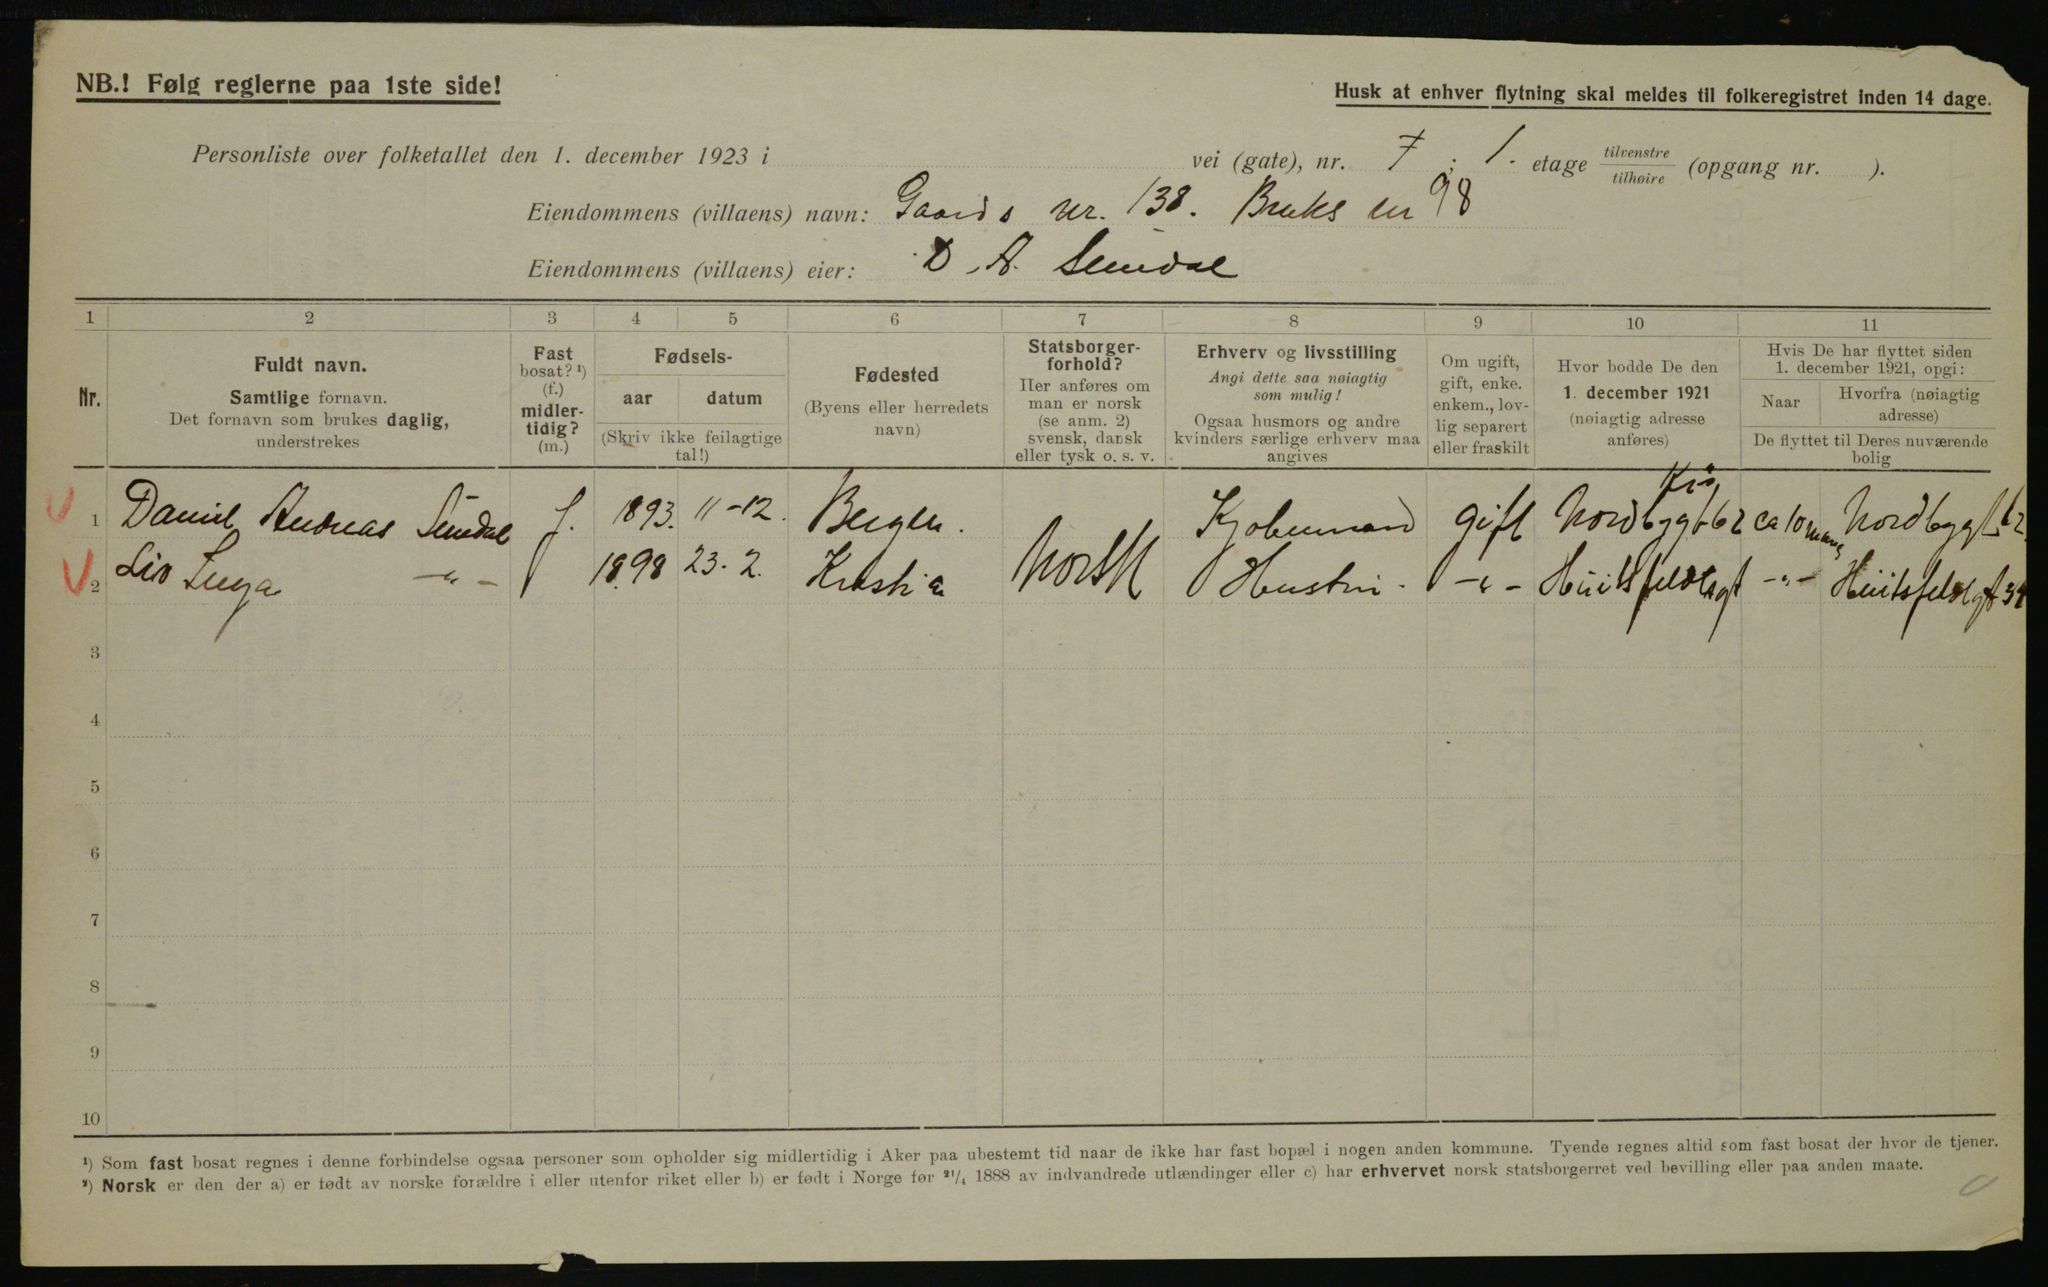 NB.! Følg reglerne paa 1ste side!
Husk at enhver flytning skal meldes til folkeregistret inden 14 dage.
Personliste over folketallet den 1. december 1923 i vei (gate), nr. 7 ; 1. etage tilvenstre tilhøire (opgang nr. ).
Eiendommens (villaens) navn: Gaards nr. 138. Bruks nr 98
Eiendommens (villaens) eier: D. A. Sundal
1 2 3 4 5 6 7 8 9 10 11
Nr.
Fuldt navn.
Samtlige fornavn.
Det fornavn som brukes daglig,
understrekes
Fast
bosat? ¹)
(f.)
midler-
tidig?
(m.)
Fødsels-
aar datum
(Skriv ikke feilagtige
tal!)
Fødested
(Byens eller herredets
navn)
Statsborger-
forhold?
Her anføres om
man er norsk
(se anm. 2)
svensk, dansk
eller tysk o. s. v.
Erhverv og livsstilling
Angi dette saa nøiagtig
som mulig!
Ogsaa husmors og andre
kvinders særlige erhverv maa
angives
Om ugift,
gift, enke.
enkem., lov-
lig separert
eller fraskilt
Hvor bodde De den
1. december 1921
(nøiagtig adresse
anføres)
Hvis De har flyttet siden
1. december 1921, opgi:
Naar
Hvorfra (nøiagtig
adresse)
De flyttet til Deres nuværende
bolig
1 Daniel Andreas Sundal f. 1893. 11-12. Bergen. Kjøbmand gift Nordbygt 62 ca 10 Nordbygt 62
2 Liv Inga -"- 1898 23. 2. Kristia Norsk Hustru. -"- Huitsfeldtsgt -"- Huitsfeldtsgt 34
3
4
5
6
7
8
9
10
¹) Som fast bosat regnes i denne forbindelse ogsaa personer som opholder sig midlertidig i Aker paa ubestemt tid naar de ikke har fast bopæl i nogen anden kommune. Tyende regnes altid som fast bosat der hvor de tjener.
²) Norsk er den der a) er født av norske forældre i eller utenfor riket eller b) er født i Norge før ²¹/₄ 1888 av indvandrede utlændinger eller c) har erhvervet norsk statsborgerret ved bevilling eller paa anden maate.